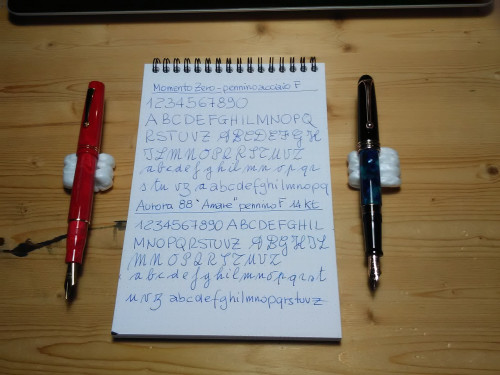 Momento Zero - pennino acciaio F
1234567890
ABCDEFGHILMNOPQ
RSTUVZ ABCDEFGH
ILMNOPQRSTUVZ
abcdefghilmnopqr
stuvz aabcdefghilmnopq
Aurora 88 "Amare" pennino F 14 Kt
1234567890 ABCDEFGHIL
MNOPQRSTUVZ ABGHIL
MNOPQRSTUVZ
abcdefghilmnopqrst
uvz abcdefghilmnopqrstuvz